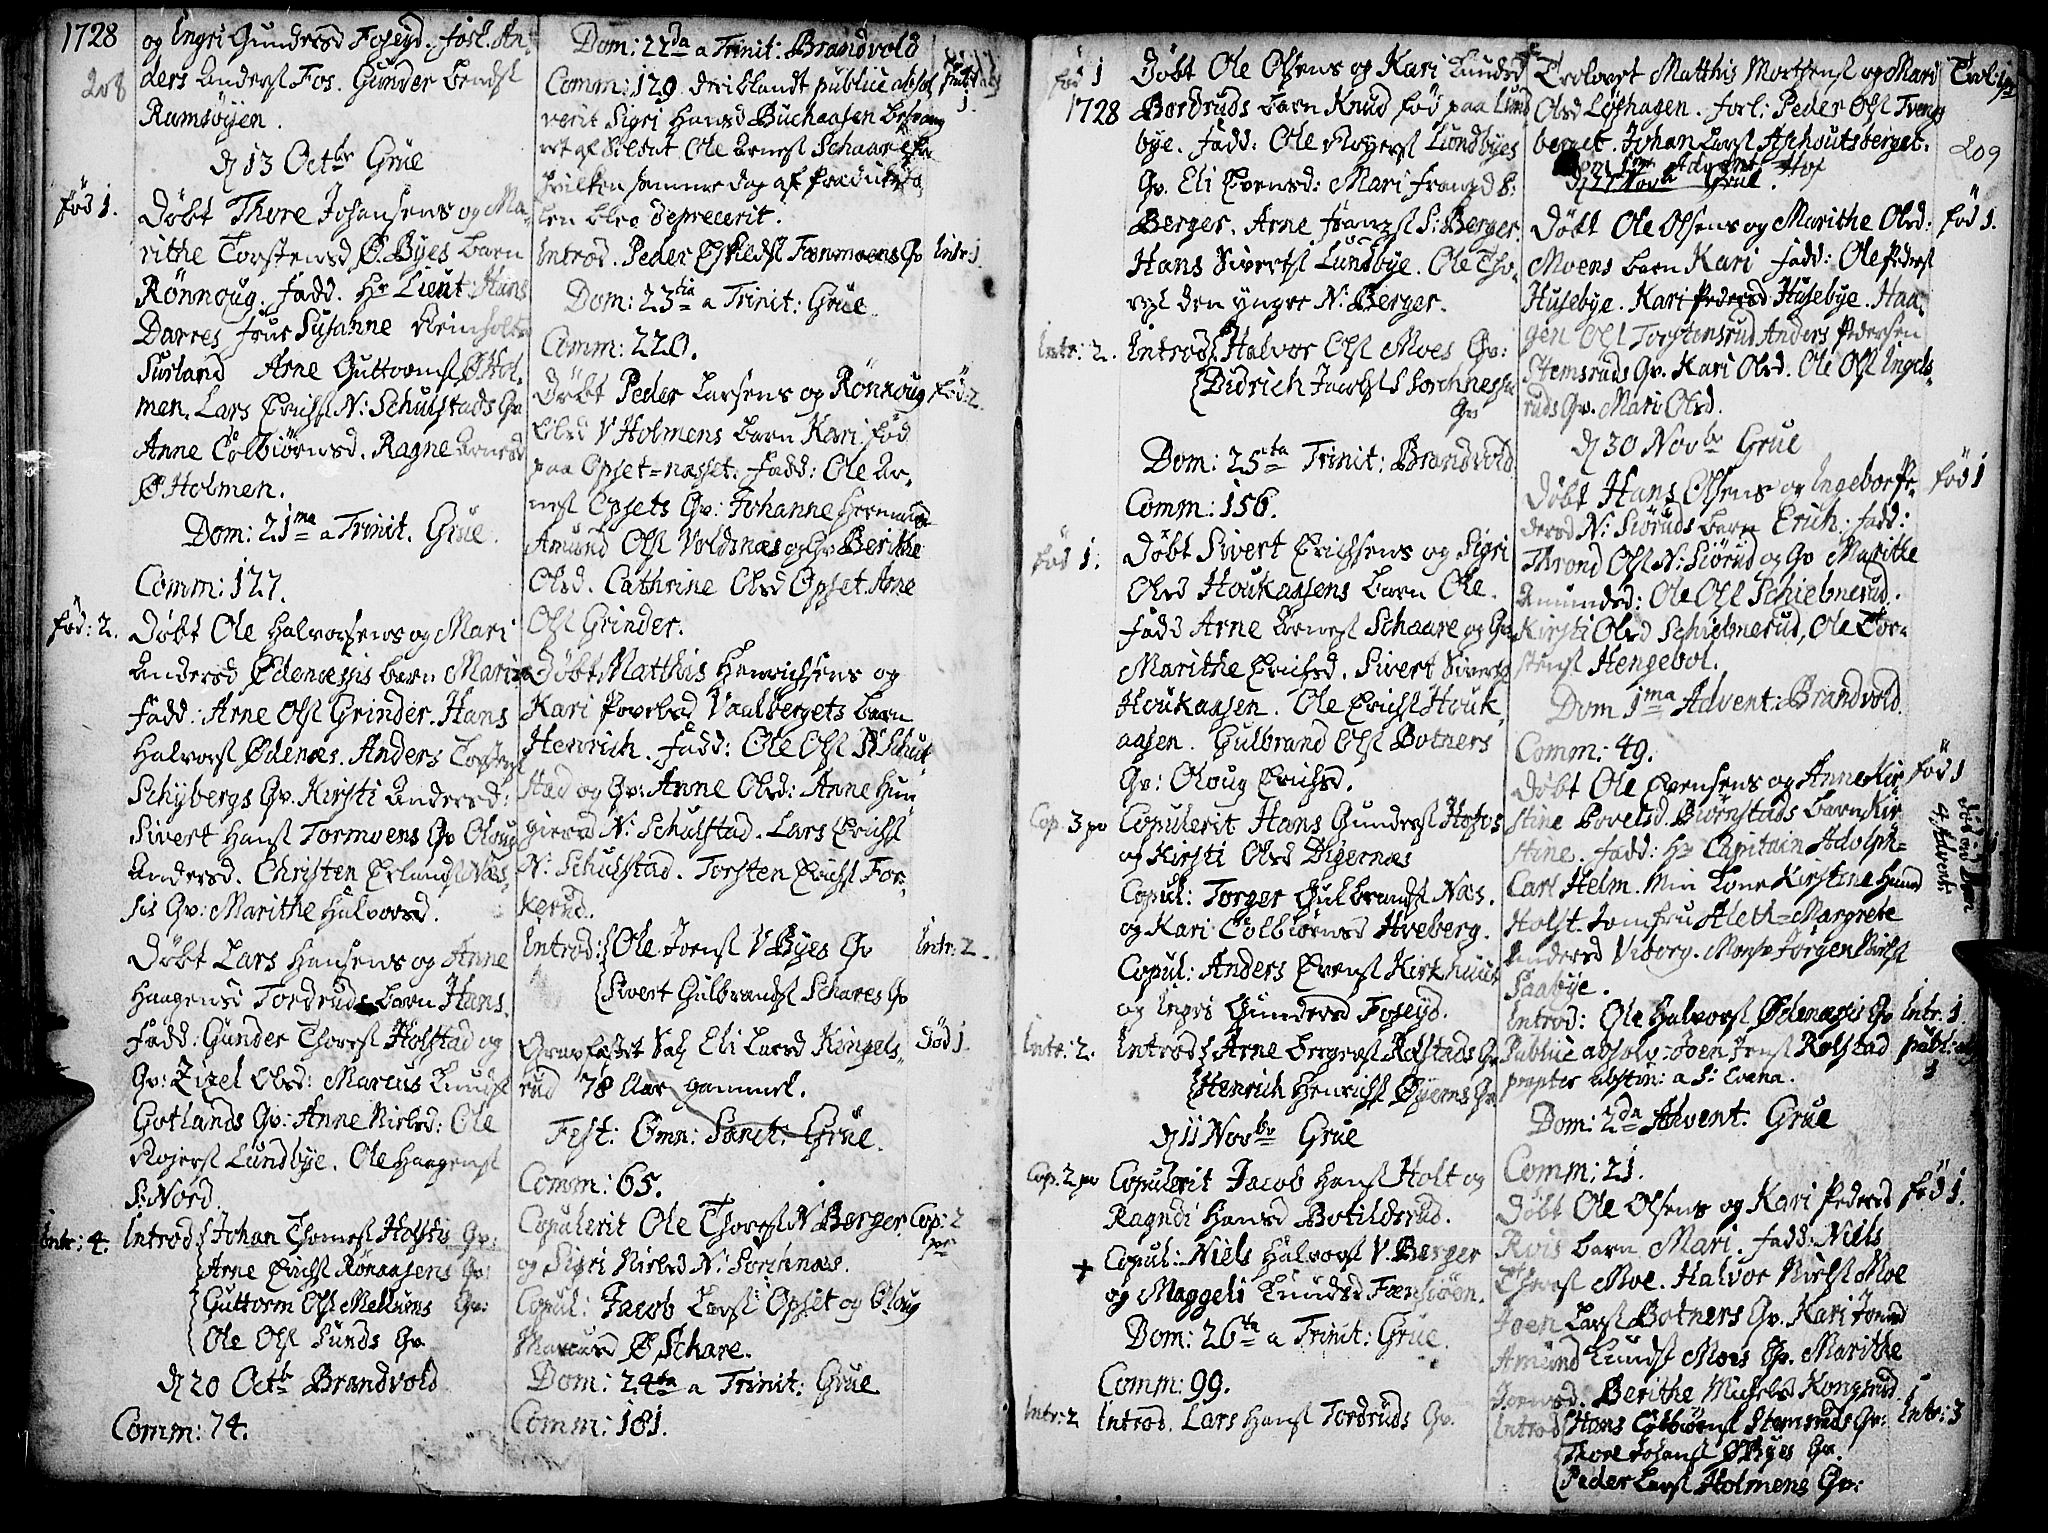 1728
208
og Ingri Gundersd Foseyd. forl. An-
ders Anderss Fos. Gunder Bendss
Ramsöyen.
d 13 Octbr Grue
fød 1.
Döbt Thore Johansens og Ma-
rithe Torstensd Ø. Byes barn
Rönnoug. Fadd. Hr Lieut: Hans
Darres frue Susanne Reinholts
Surland Arne Guttormss Ø. Hol-
men. Lars Erichss N: Schulstads Qv
Anne Colbiörnsd. Ragne Arnesd
Ø. Holmen.
Dom: 21ma a Trinit. Grue.
Comm: 127.
fød: 2.
Döbt Ole Halvorsens og Mari
Andersd Ødenæssis barn Mari
Fadd: Arne Olss Grinder. Hans
Halvorss Ødenæs. Anders Torstenss
Schybergs Qv. Kirsti Andersd:
Sivert Hanss Tormoens Qv Oloug
Andersd. Christen Erlandss Næs-
sis Qv: Marithe Halvorsd.
Döbt Lars Hansens og Anne
Haagensd Tordruds barn Hans.
Fadd: Gunder Thorss Holstad og
Qv: Zizel Olsd: Marcus Knudss
Gotlands Qv: Anne Nielsd: Ole
Rojerss Lundbye. Ole Haagenss
S: Nord.
Intr: 4.
Introd Johan Thomess Holstis Qv:
Arne Erichss Rönaasens Qv:
Guttorm Olss Mellums Qv:
Ole Olss Lunds Qv
d 20 Octbr Brandvold
Comm: 74.
Dom: 22da a Trinit: Brandvold
Comm: 129. iblandt publice absol
verit Sigri Hansd Buchaasen besvang
ret af Soldat Ole Arness Schaare
hvilken samme dag af Prædikesto-
len blev deprecerit.
Introd. Peder Eskeldss Fænmoens Qv
Intr: 1.
Dom: 23tia a Trinit: Grue.
Comm: 220.
Döbt Peder Larsens og Rönnoug
fød: 2.
Olsd V Holmens barn Kari fød
paa Opset=næsset. Fadd: Ole Ar-
ness Opsets Qv: Johanne Hermansd
Amund Olss Voldsnæs og Qv Berithe
Olsd. Cathrine Olsd Opset. Arne
Olss Grinder.
Döbt Matthis Henrichsens og
Kari Povelsd Vaalbergets barn
Henrich. Fadd: Ole Olss N Schul-
stad og Qv: Anne Olsd: Anne Hun-
giersd N: Schulstad. Lars Erichss
N: Schulstad. Torsten Erichss For-
kerud.
Introd: Ole Joenss V Byes Qv
Sivert Gulbrandss Schares Qv
Intr: 2.
Gravfæstet Sal Eli Larsd Kongels-
rud 78 Aar gammel.
Död 1.
Fest: Omn: Sanct: Grue.
Comm: 65.
Copulerit Ole Thorss N Berger
Cop: 2
pr
og Sigri Nielsd N: Sorchnæs.
Copul: Jacob Larss Opset og Oloug
Marcusd Ø Schare.
Dom: 24ta a Trinit: Grue
Comm: 181.
fød 1
1728
Döbt Ole Olsens og Kari Knudsd
Bordruds barn Knud fød paa Lund
bye. Fadd: Ole Rojerss Lundbyes
Qv. Eli Evensd: Mari Franzd S:
Berger. Arne Franzss S: Berger.
Hans Sivertss Lundbye. Ole Tho-
ress den yngre N: Berger.
Intr: 2.
Introd Halvor Olss Moes Qv:
Didrich Jacobss S Sorchnes
Qv
Dom: 25ta Trinit: Brandvold
Comm: 156.
fød 1.
Döbt Sivert Erichsens og Sigri
Olsd Houkaasens barn Ole.
Fadd Arne Arness Schaare og Qv
Marithe Erichsd. Sivert Sivertss
Houkaasen. Ole Erichss Houk
aasen. Gulbrand Olss Botners
Qv: Oloug Erichsd.
Cop. 3 pr
Copulerit Hans Gunderss Hofos
og Kirsti Olsd Digernæs
Copul: Torger Gulbrandss Næs.
og Kari Colbiörnsd Hveberg.
Copul: Anders Evenss Kirkhuus
og Ingri Gundersd Foseyd.
Intr: 2.
Introd Arne Bergerss Rolstads Qv
Henrich Henrichss Øyerns Qv
d 11 Novbr Grue
Cop. 2 pr
Copulerit Jacob Hanss Holt og
Ragndi Hansd Botildsrud.
+
Copul: Niels Halvorss V. Berger
og Maggeli Knudsd Fænsiöen.
Dom: 26ta a Trinit: Grue.
Comm: 99.
Intr: 2
Introd. Lars Hanss Tordruds Qv.
Trolovet Matthis Mortenss og Mari
Trol: 1 pr
Olsd Löshagen. forl: Peder Olss Tveng
berget. Johan Larss Aschoutsberget.
209
Dom 1ma Advent Hof
d 27 Novbr Grue.
Döbt Ole Olsens og Marithe Olsd:
fød 1.
Moens barn Kari Fadd: Ole Pederss
Husebye. Kari Pedersd Husebye. Haa-
gen Olss Torstensrud Anders Pedersen
Stemsruds Qv. Kari Olsd. Ole Olss Ingels-
ruds Qv. Mari Olsd.
d 30 Novbr Grue
Döbt Hans Olsens og Ingebor Pe-
fød 1
dersd N: Siöruds barn Erich. Fadd:
Thrond Olss N: Siörud og Qv Marithe
Amundsd: Ole Olss Schielmerud.
Kirsti Olsd Schielmerud, Ole Tor-
stenss Hengebol.
Dom 1ma Advent: Brandvold.
Comm: 49.
Döbt Ole Evensens og Anne Kir-
fød 1
stine Povelsd. Biörnstads barn Kir-
stine. Fadd: Hr Capitain Adolph=
Carl Helm. Min Kone Kirstine Hansd
Holst. Jomfru Aleth=Margrete
Andersd Viborg. Monsr Jörgen Nielss
Saabye.
4. Advent
Introd: Ole Halvorss Ødenæssis Qv
Intr. 1.
Public absolv: Joen Jenss Rolstad
publ: abs
1
propter abstin: a S: Coena.
Dom: 2da Advent. Grue
Comm: 21.
Döbt Ole Olsens og Kari Pedersd
fød 1.
Rvis barn Mari. Fadd: Niels
Thorss Moe. Halvor Nielss Moe
Joen Larss Botners Qv. Kari Jonsd
Amund Knudss Moes Qv. Marithe
Berithe Michelsd Kongsrud
Introd Hans Colbiörnss Stemsruds Qv:
Intr: 3
Thore Johanss Ø Byes Qv.
Peder Larss Holmens Qv: